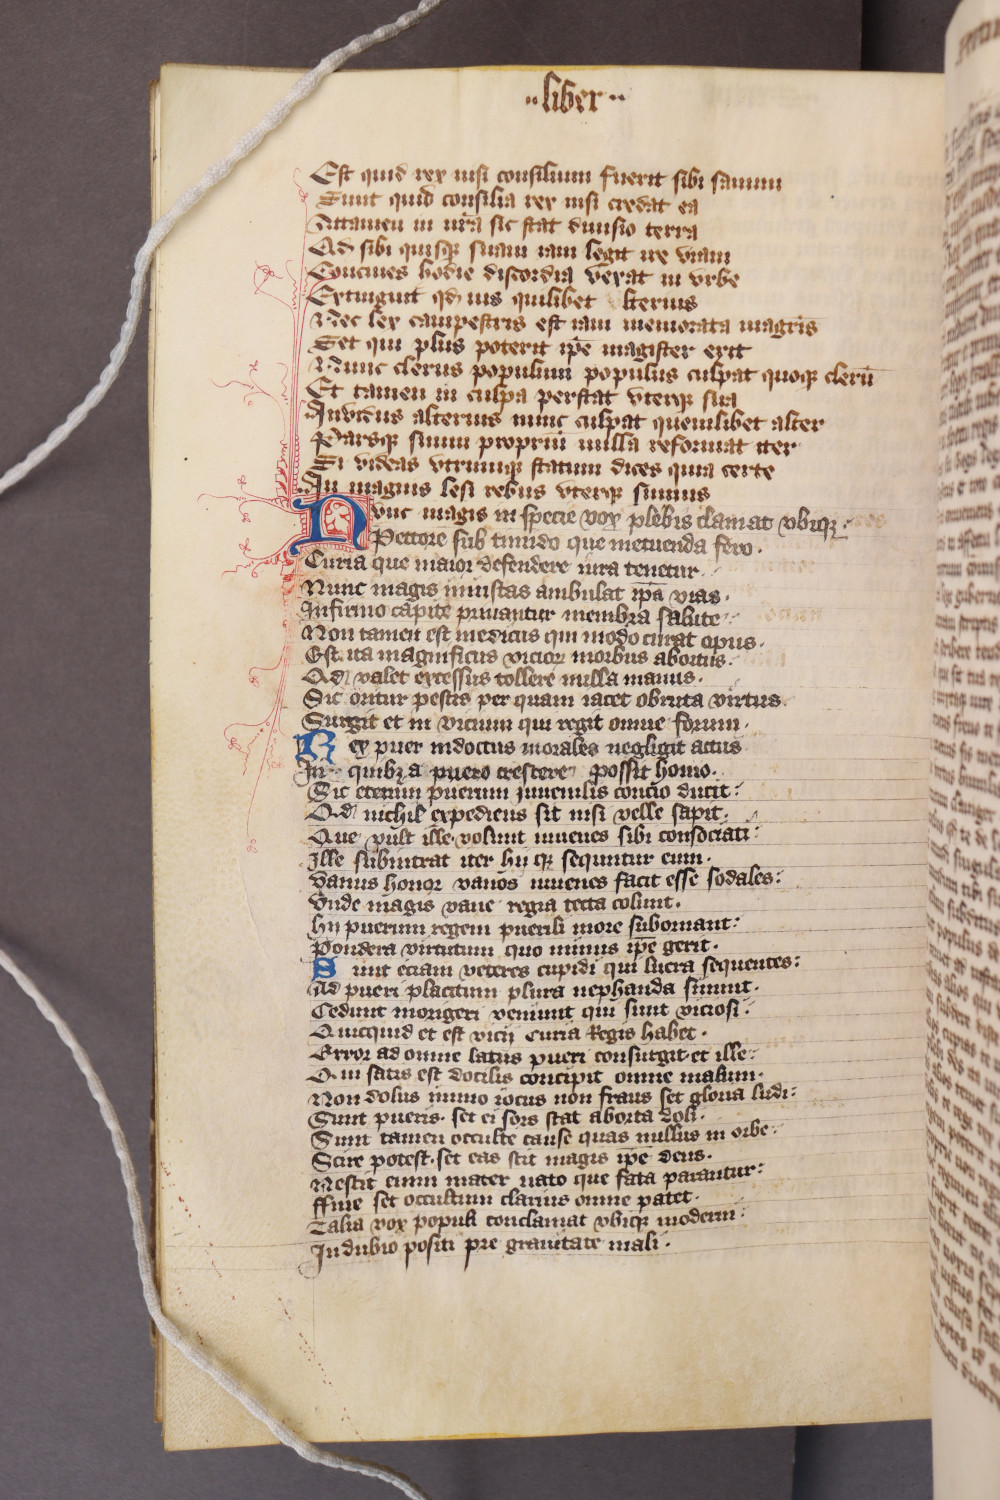 ··liber··
Est quid rex nisi consilium fuerit sibi sanum
Sunt quid consilia rex nisi credat ea
Attamen in nr̄a sic stat diuisio terra
Qd sibi quisqꝫ suam iam legit ire viam
Conciues hodie discordia vexat in vrbe
Extinguit qd ius quilibet lterius
Nec lex campestris est iam memorata magr̄is
Set qui plus poterit ip̄e magister erit
Nunc clerus populum populus culpat quoqꝫ clerū
Et tamen in culpa perstat vterqꝫ sua
Inuidus alterius nunc culpat quemlibet alter
Parsqꝫ suum propriū nulla reformat iter
Si videas vtrumqꝫ statum dices quia certe
In magnis lesi rebus vterqꝫ sumus
Nunc magis in specie vox plebis clamat vbiqꝫ·
Pectore sub timido que metuenda fero·
Curia que maior defendere iura tenetur
Nunc magis iniustas ambulat ip̄a vias·
Infirmo capite priuantur membra salute
Non tamen est medicus qui modo curat opus·
Est ita magnificus viciorꝫ morbus abortus·
Qd valet excessus tollere nulla manus·
Sic oritur pestis per quam iacet obruta virtus
Surgit et in vicium qui regit omne forum·
Rex puer indoctus morales negligit actus
In quibꝫ a puero crescere possit homo·
Sic etenim puerum iuuenilis concio ducit:
Qd nichil expediens sit nisi velle sapit·
Que vult ille volunt iuuenes sibi consociati:
Ille subintrat iter hii qꝫ sequntur eum·
Vanus honor vanos iuuenes facit esse sodales:
Vnde magis vane regia tecta colunt·
hii puerum regem puerili more subornant:
Pondera virtutum quo minus ip̄e gerit·
Sunt eciam veteres cupidi qui lucra sequentes:
Ad pueri placitum plura nephanda sinunt·
Cedunt morigeri veniunt qui sunt viciosi:
Quicquid et est vicii Curia Regis habet·
Error ad omne latus pueri consurgit et ille:
Qui satis est docilis concipit omne malum·
Non dolus immo iocus non fraus set gloria ludi:
Sunt pueris· set ei sors stat aborta doli·
Sunt tamen occulte cause quas nullus in orbe:
Scire potest· set eas scit magis ip̄e deus·
Nescit enim mater nato que fata parantur:
ffine set occultum clarius omne patet·
Talia vox populi conclamat vbiqꝫ moderni:
In dubio positi pre grauitate mali·